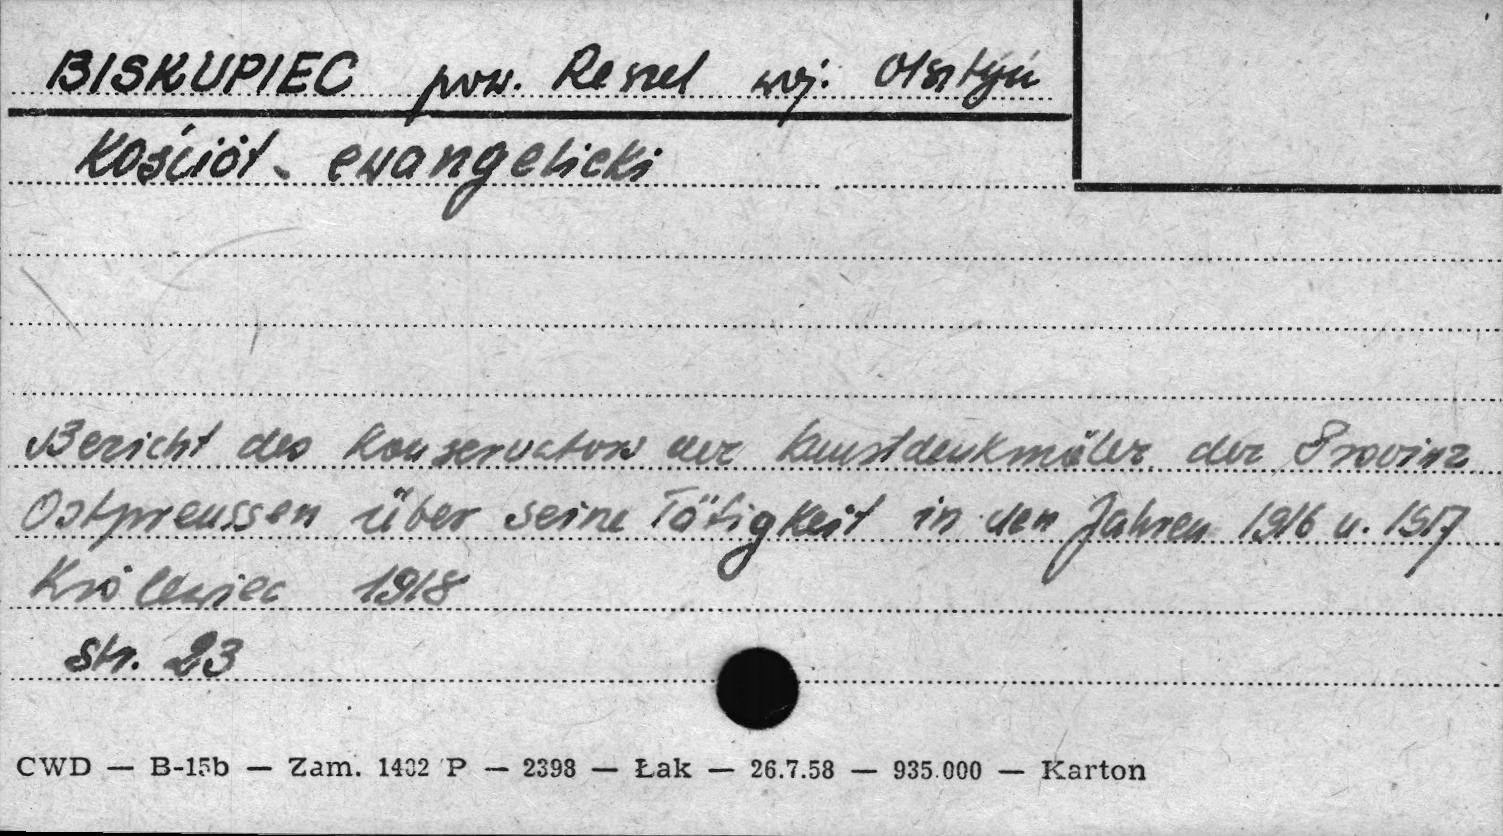 BISKUPIEC pow. Reszel woj. Olsztyn
Kościół ewangelicki
Bericht des Konservators der Kunstdenkmäler der Provinz
Ostpreussen über seine Tätigkeit in den Jahren 1916 u. 1917
Królewiec 1918
str. 23
CWD — B-15b — Zam. 1402 P — 2398 — Łak — 26.7.58 — 935.000 — Karton